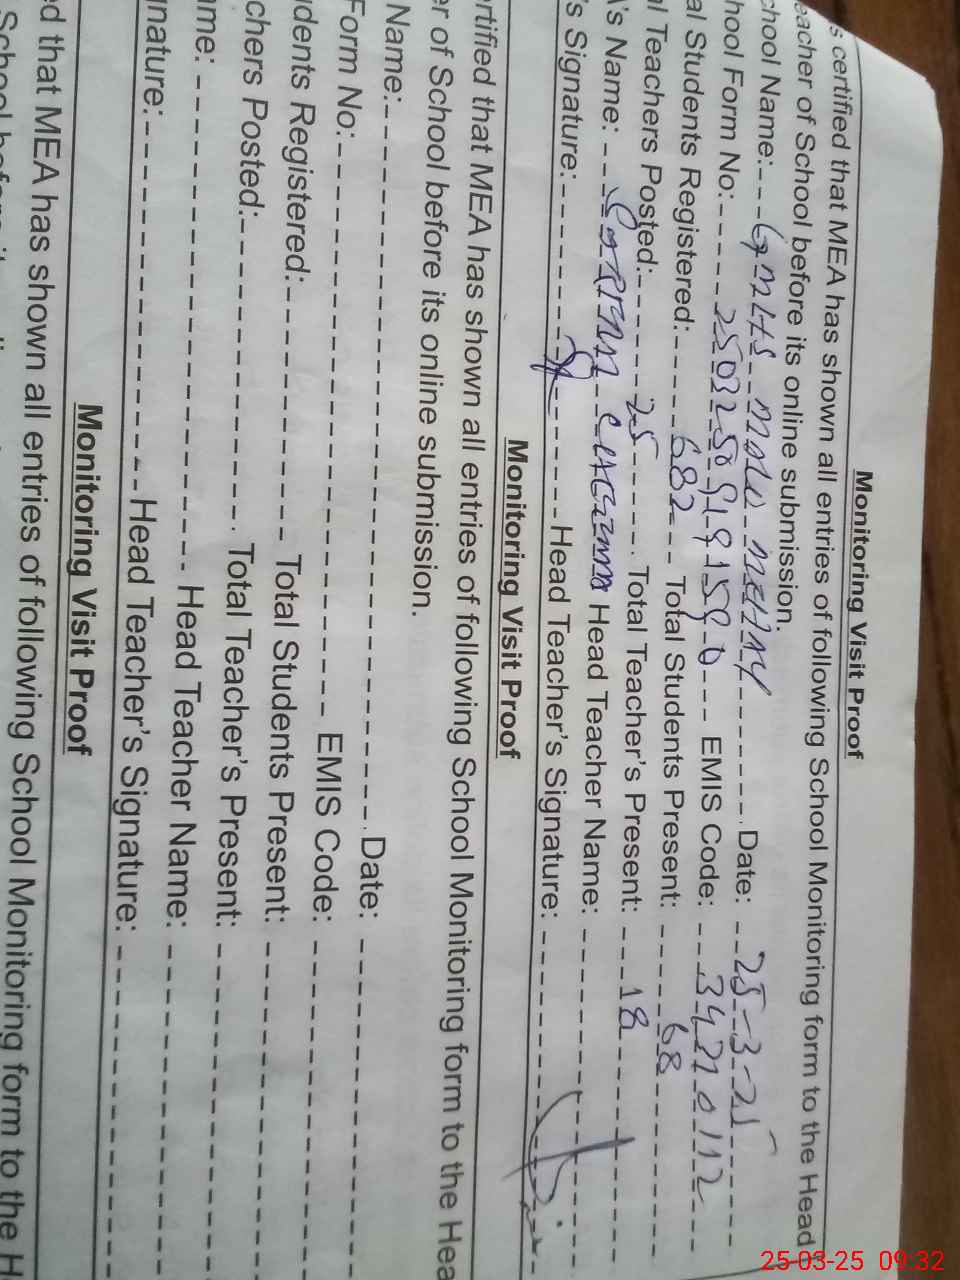 Monitoring Visit Proof
s certified that MEA has shown all entries of following School Monitoring form to the Head
eacher of School before its online submission.
chool Name: Date: 25-3-25
hool Form No: EMIS Code: 34210112
al Students Registered: 682 Total Students Present: 68
al Teachers Posted: 25 Total Teacher's Present: 18
's Name: Head Teacher Name:
's Signature: Head Teacher's Signature:
Monitoring Visit Proof
ertified that MEA has shown all entries of following School Monitoring form to the Hea
er of School before its online submission.
Name: Date:
Form No: EMIS Code:
dents Registered: Total Students Present:
chers Posted: Total Teacher's Present:
ame: Head Teacher Name:
gnature: Head Teacher's Signature:
Monitoring Visit Proof
ed that MEA has shown all entries of following School Monitoring form to the H
25-03-25 09:32